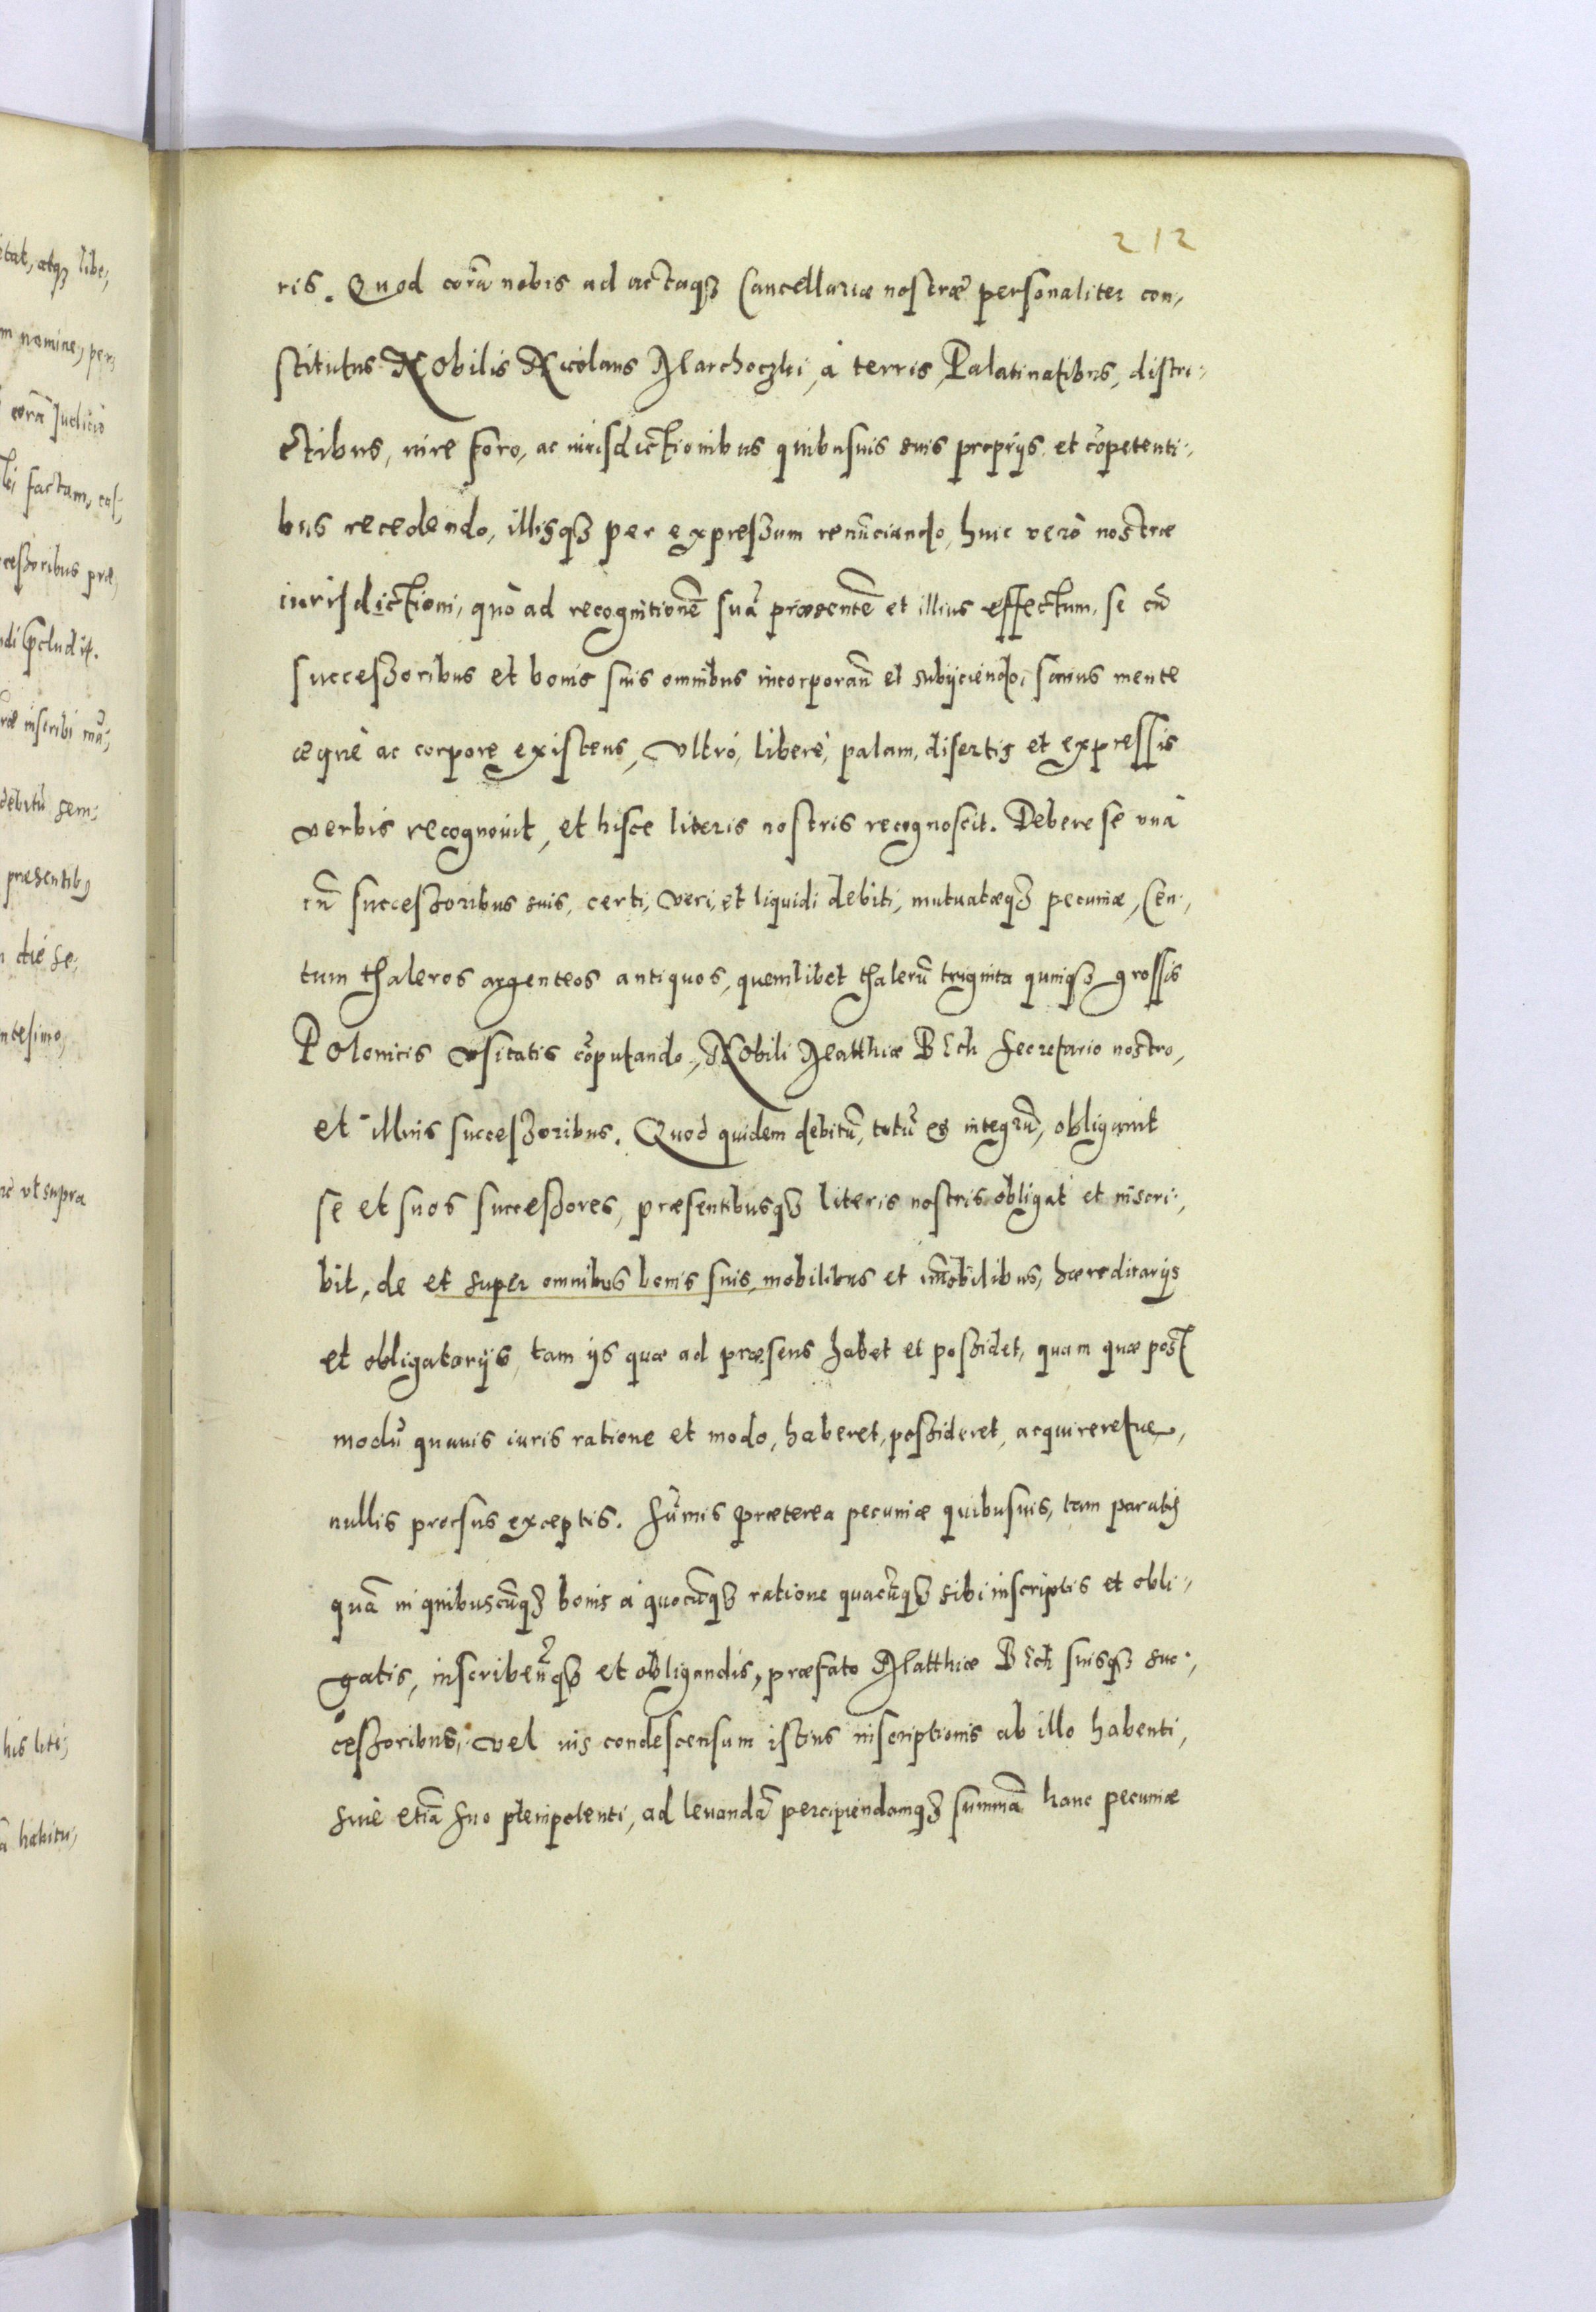 212
ris. Quod corã nobis ad actaqȝ Cancellariæ nostræ personaliter con,
stitutus Nobilis Nicolaus Marchoczki, à terris, Palatinatibus, distri,
ctibus, iure foro, ac iurisdictionibus quibusuis suis proprijs et cõpetenti,
bus recedendo, illisqȝ per expressum renũciando, huic verò nostræ
iurisdictioni, quò ad recognitionẽ suã præsentẽ et illius effectum, se cũ
successoribus et bonis suis omnibus incorporañ et subijciendo, sanus mente
æquè ac corpore existens, vltrò, liberè, palam, disertis et expressis
verbis recognouit, et hisce literis nostris recognoscit. Debere se vnà
cũ successoribus suis, certi, veri, et liquidi debiti, mutuatæqȝ pecuniæ, Cen,
tum thaleros argenteos antiquos, quemlibet thalerũ triginta quinqȝ grossis
Polonicis vsitatis cõputando, Nobili Matthiæ Bech Secretario nostro,
et illius successoribus. Quod quidem debitũ, totũ et integrũ, obligauit
se et suos successores, præsentibusqȝ literis nostris obligat et inscri,
bit, de et super omnibus bonis suis, mobilibus et im̃obilibus, hæreditarijs
et obligatorijs, tam ijs quæ ad præsens habet et possidet, quam quæ post
modũ quauis iuris ratione et modo, haberet, possideret, acquireretue,
nullis prorsus exceptis. Sum̃is præterea pecuniæ quibusuis, tam paratis
quã in quibuscũqȝ bonis à quocũqȝ ratione quacũqȝ sibi inscriptis et obli,
gatis, inscribeñqȝ et obligandis, præfato Matthiæ Bech suisqȝ suc,
cessoribus, vel ius condescensum istius inscriptionis ab illo habenti,
siue etiã suo plenipotenti, ad leuandã percipiendamqȝ summã hanc pecuniæ
etat, atqȝ libe,
m nomine, per,
corã Judicio
factam, cas,
cessoribus præ,
debitũ sem,
præsentibȝ
die se,
ntesimo,
vt supra
his lite,
habitu,